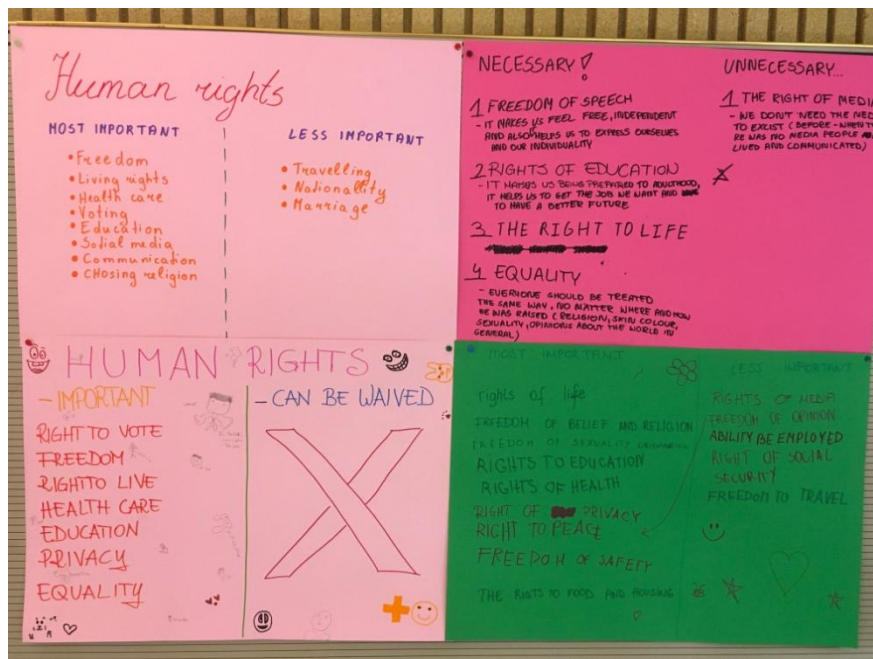 Human rights
MOST IMPORTANT
• Freedom
• Living rights
• Health care
• Voting
• Education
• Social media
• Communication
• CHosing religion
LESS IMPORTANT
• Travelling
• Nationallity
• Marriage
NECESSARY!
1 FREEDOM OF SPEECH
- IT MAKES US FEEL FREE, INDEPENDENT
AND ALSO HELPS US TO EXPRESS OURSELVES
AND OUR INDIVIDUALITY
2 RIGHTS OF EDUCATION
- IT MAKES US BEING PREPARED TO ADULTHOOD,
IT HELPS US TO GET THE JOB WE WANT AND
TO HAVE A BETTER FUTURE
3 THE RIGHT TO LIFE
4 EQUALITY
- EVERYONE SHOULD BE TREATED
THE SAME WAY, NO MATTER WHERE AND HOW
HE WAS RAISED (RELIGION, SKIN COLOUR,
SEXUALITY, OPINIONS ABOUT THE WORLD IN
GENERAL)
UNNECESSARY...
1 THE RIGHT OF MEDIA
- WE DON'T NEED THE MED
TO EXCIST (BEFORE - WHEN TH
RE WAS NO MEDIA PEOPLE
LIVED AND COMMUNICATED)
HUMAN RIGHTS
- IMPORTANT
RIGHT TO VOTE
FREEDOM
RIGHT TO LIVE
HEALTH CARE
EDUCATION
PRIVACY
EQUALITY
- CAN BE WAIVED
MOST IMPORTANT
rights of life
FREEDOM OF BELIEF AND RELIGION
FREEDOM OF SEXUALITY
RIGHTS TO EDUCATION
RIGHTS OF HEALTH
RIGHT OF PRIVACY
RIGHT TO PEACE
FREEDOM OF SAFETY
THE RIGTS TO FOOD AND HOUSING
LESS IMPORTANT
RIGHTS OF MEDIA
FREEDOM OF OPINION
ABILITY BE EMPLOYED
RIGHT OF SOCIAL
SECURITY
FREEDOM TO TRAVEL